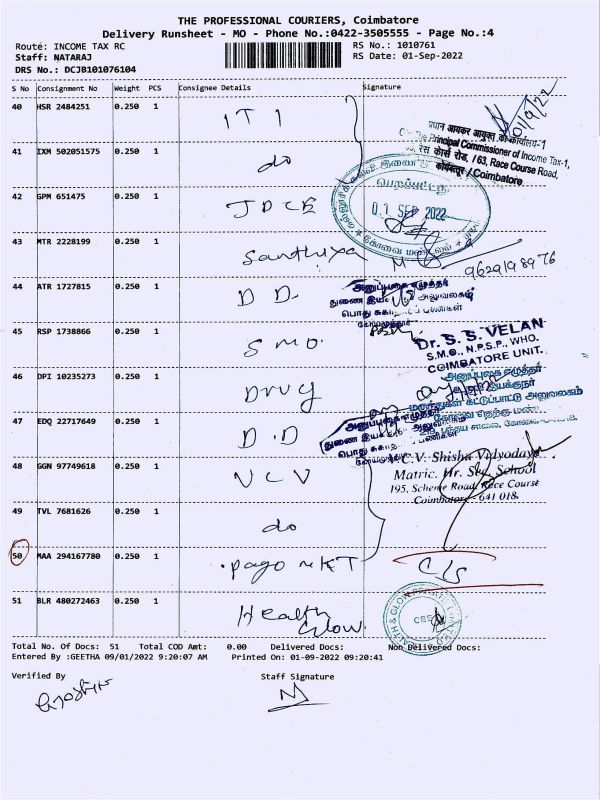 THE PROFESSIONAL COURIERS, Coimbatore
Delivery Runsheet - MO - Phone No.:0422-3505555 - Page No.:4
Route: INCOME TAX RC
RS No.: 1010761
Staff: NATARAJ
RS Date: 01-Sep-2022
DRS No.: DCJB101076104
S No Consignment No Weight PCS Consignee Details Signature
40 HSR 2484251 0.250 1 ITI
01/9/22
प्रधान आयकर आयुक्त का कार्यालय-1
The Principal Commissioner of Income Tax-1,
63, रेस कोर्स रोड, / 63, Race Course Road,
कोयंबत्तूर / Coimbatore
41 IXM 502051575 0.250 1 do
42 GPM 651475 0.250 1 JDCE
பெறப்பட்டது
01 SEP 2022
கோவை மண்டலம்
43 MTR 2228199 0.250 1 Santhiya
9629198976
44 ATR 1727815 0.250 1 D D
அனுப்புகை எழுத்தர்
45 RSP 1738866 0.250 1 SMO
Dr. S. S. VELAN
S.M.O., N.P.S.P., WHO.
COIMBATORE UNIT.
46 DPI 10235273 0.250 1 Drug
அனுப்புகை எழுத்தர்
மருந்துகள் கட்டுப்பாட்டு அலுவலகம்
47 EDQ 22717649 0.250 1 D.D
அனுப்புகை எழுத்தர்
48 GGN 97749618 0.250 1 VCV
C.V. Shishu Vidyodaya
Matric. Hr. Sec. School
195, Scheme Road, Race Courst
Coimbatore - 641 018.
49 TVL 7681626 0.250 1 do
50 MAA 294167780 0.250 1 Pago MKT C/S
51 BLR 480272463 0.250 1 Health Glow
HEALTH & GLOW PRIVATE LIMITED
CBE
Total No. Of Docs: 51 Total COD Amt: 0.00 Delivered Docs: Non Delivered Docs:
Entered By :GEETHA 09/01/2022 9:20:07 AM Printed On: 01-09-2022 09:20:41
Verified By Staff Signature